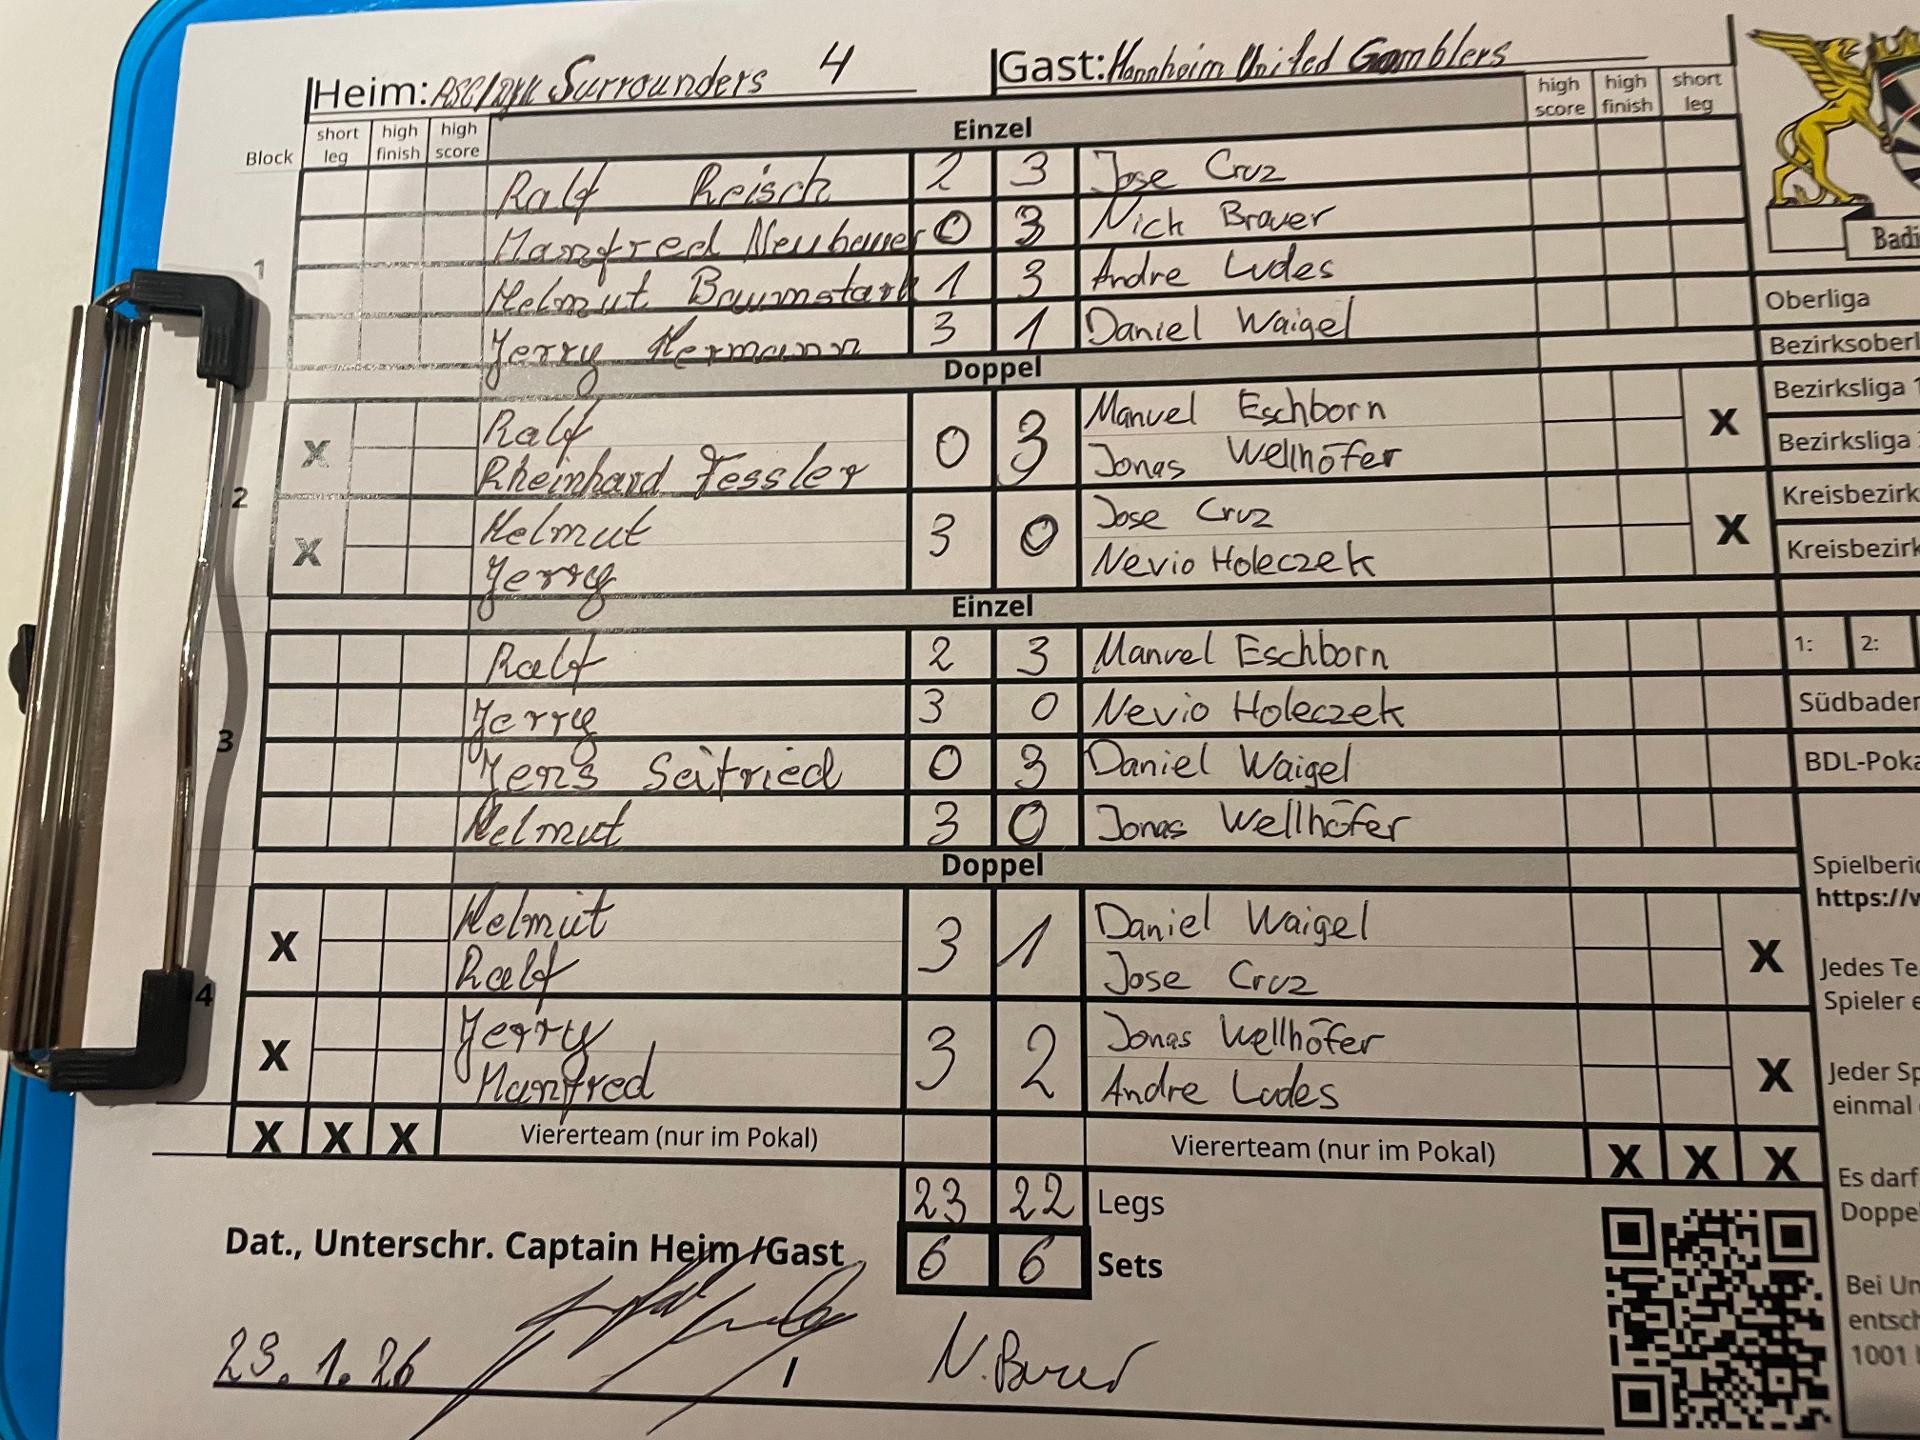 Heim: ASC/DJK Surrounders 4 Gast: Mannheim United Gamblers
Block short leg high finish high score Einzel high score high finish short leg
1
Ralf Reisch 2 3 Jose Cruz
Manfred Neubauer 0 3 Nick Brauer
Helmut Baumstark 1 3 Andre Ludes
Jerry Hermann 3 1 Daniel Waigel
Doppel
2
X Ralf 0 3 Manuel Eschborn X
Rheinhard Fessler Jonas Wellhöfer
X Helmut 3 0 Jose Cruz X
Jerry Nevio Holeczek
Einzel
3
Ralf 2 3 Manuel Eschborn
Jerry 3 0 Nevio Holeczek
Jens Seifried 0 3 Daniel Waigel
Helmut 3 0 Jonas Wellhöfer
Doppel
4
X Helmut 3 1 Daniel Waigel X
Ralf Jose Cruz
X Jerry 3 2 Jonas Wellhöfer X
Manfred Andre Ludes
X X X Viererteam (nur im Pokal) Viererteam (nur im Pokal) X X X
23 22 Legs
Dat., Unterschr. Captain Heim /Gast 6 6 Sets
23.1.26
Badi
Oberliga
Bezirksoberl
Bezirksliga 1
Bezirksliga
Kreisbezirk
Kreisbezirk
1: 2:
Südbaden
BDL-Poka
Spielberic
https://w
Jedes Te
Spieler e
Jeder Sp
einmal
Es darf
Doppe
Bei Un
entsch
1001